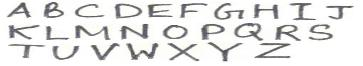 A B C D E F G H I J
K L M N O P Q R S
T U V W X Y Z